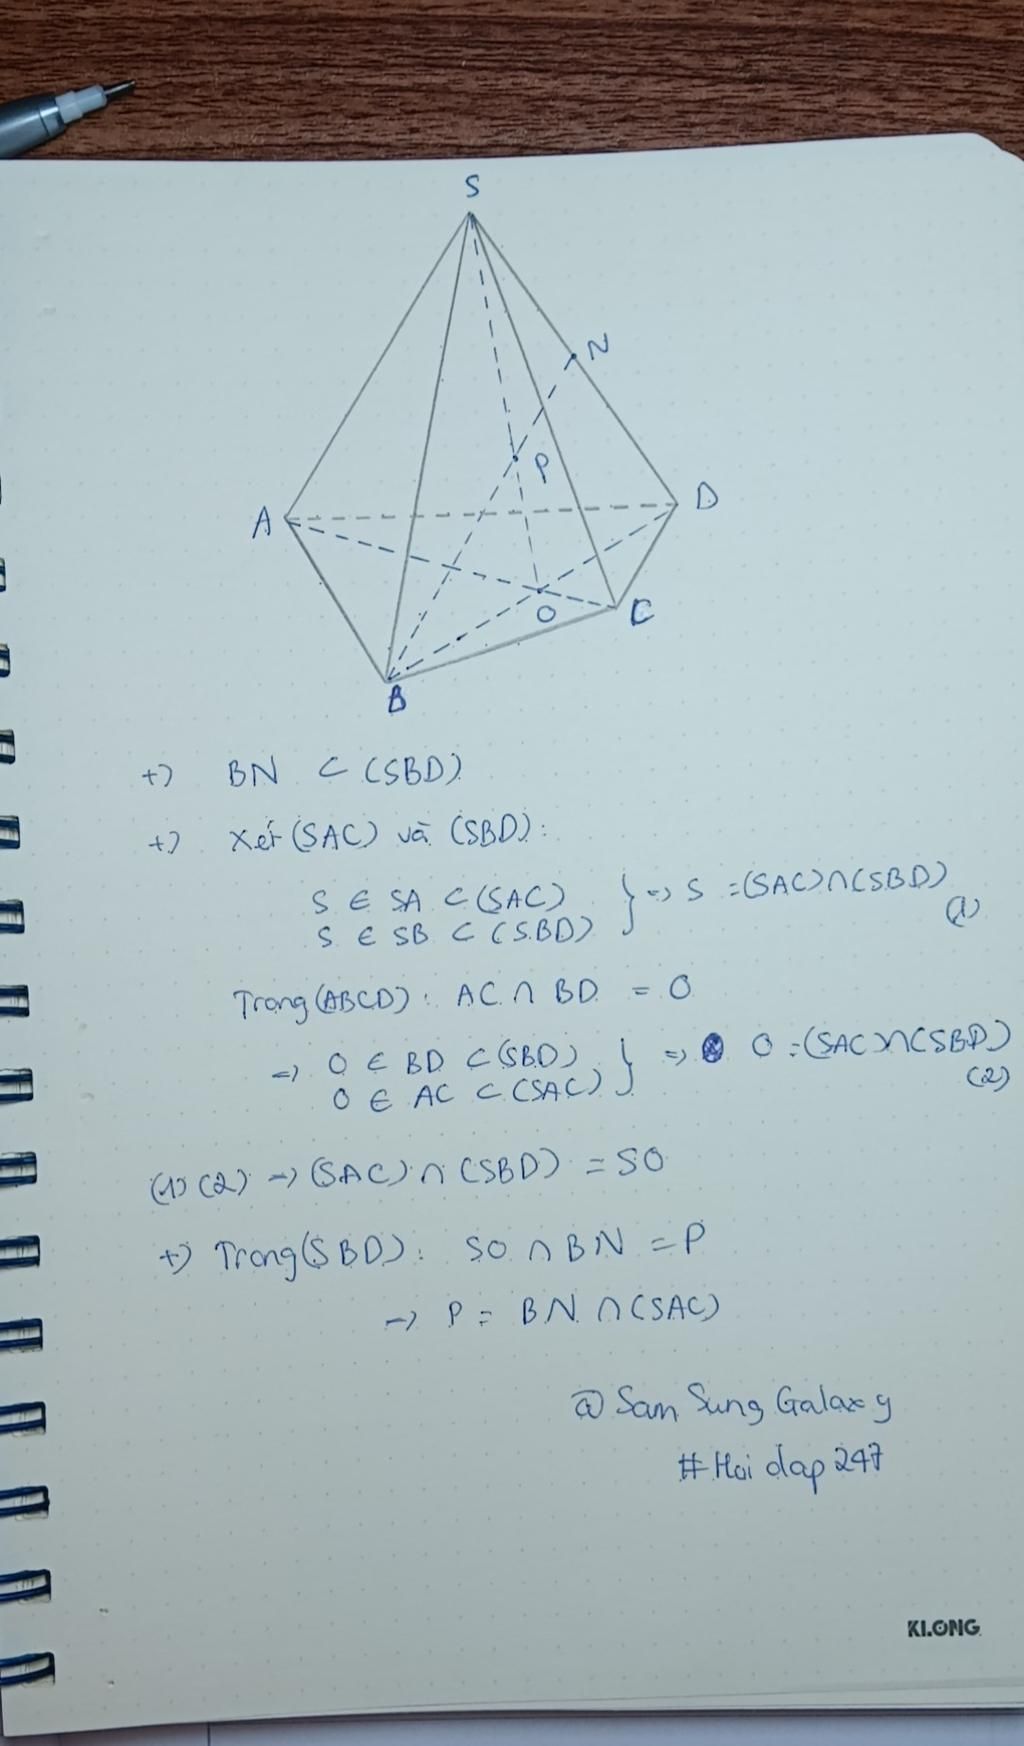 S
N
P
A
D
O
C
B
+) BN ⊂ (SBD)
+) Xét (SAC) và (SBD):
S ∈ SA ⊂ (SAC)
S ∈ SB ⊂ (SBD)
} => S = (SAC) ∩ (SBD)
(1)
Trong (ABCD): AC ∩ BD = O
=> O ∈ BD ⊂ (SBD)
O ∈ AC ⊂ (SAC)
} => O = (SAC) ∩ (SBD)
(2)
(1) (2) -> (SAC) ∩ (SBD) = SO
+) Trong (SBD): SO ∩ BN = P
-> P = BN ∩ (SAC)
@ Sam Sung Galaxy
# Hoi dap 247
KLONG